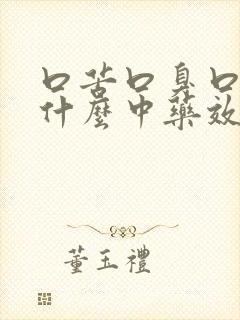 口苦口臭口
什麼中藥效
董玉禮